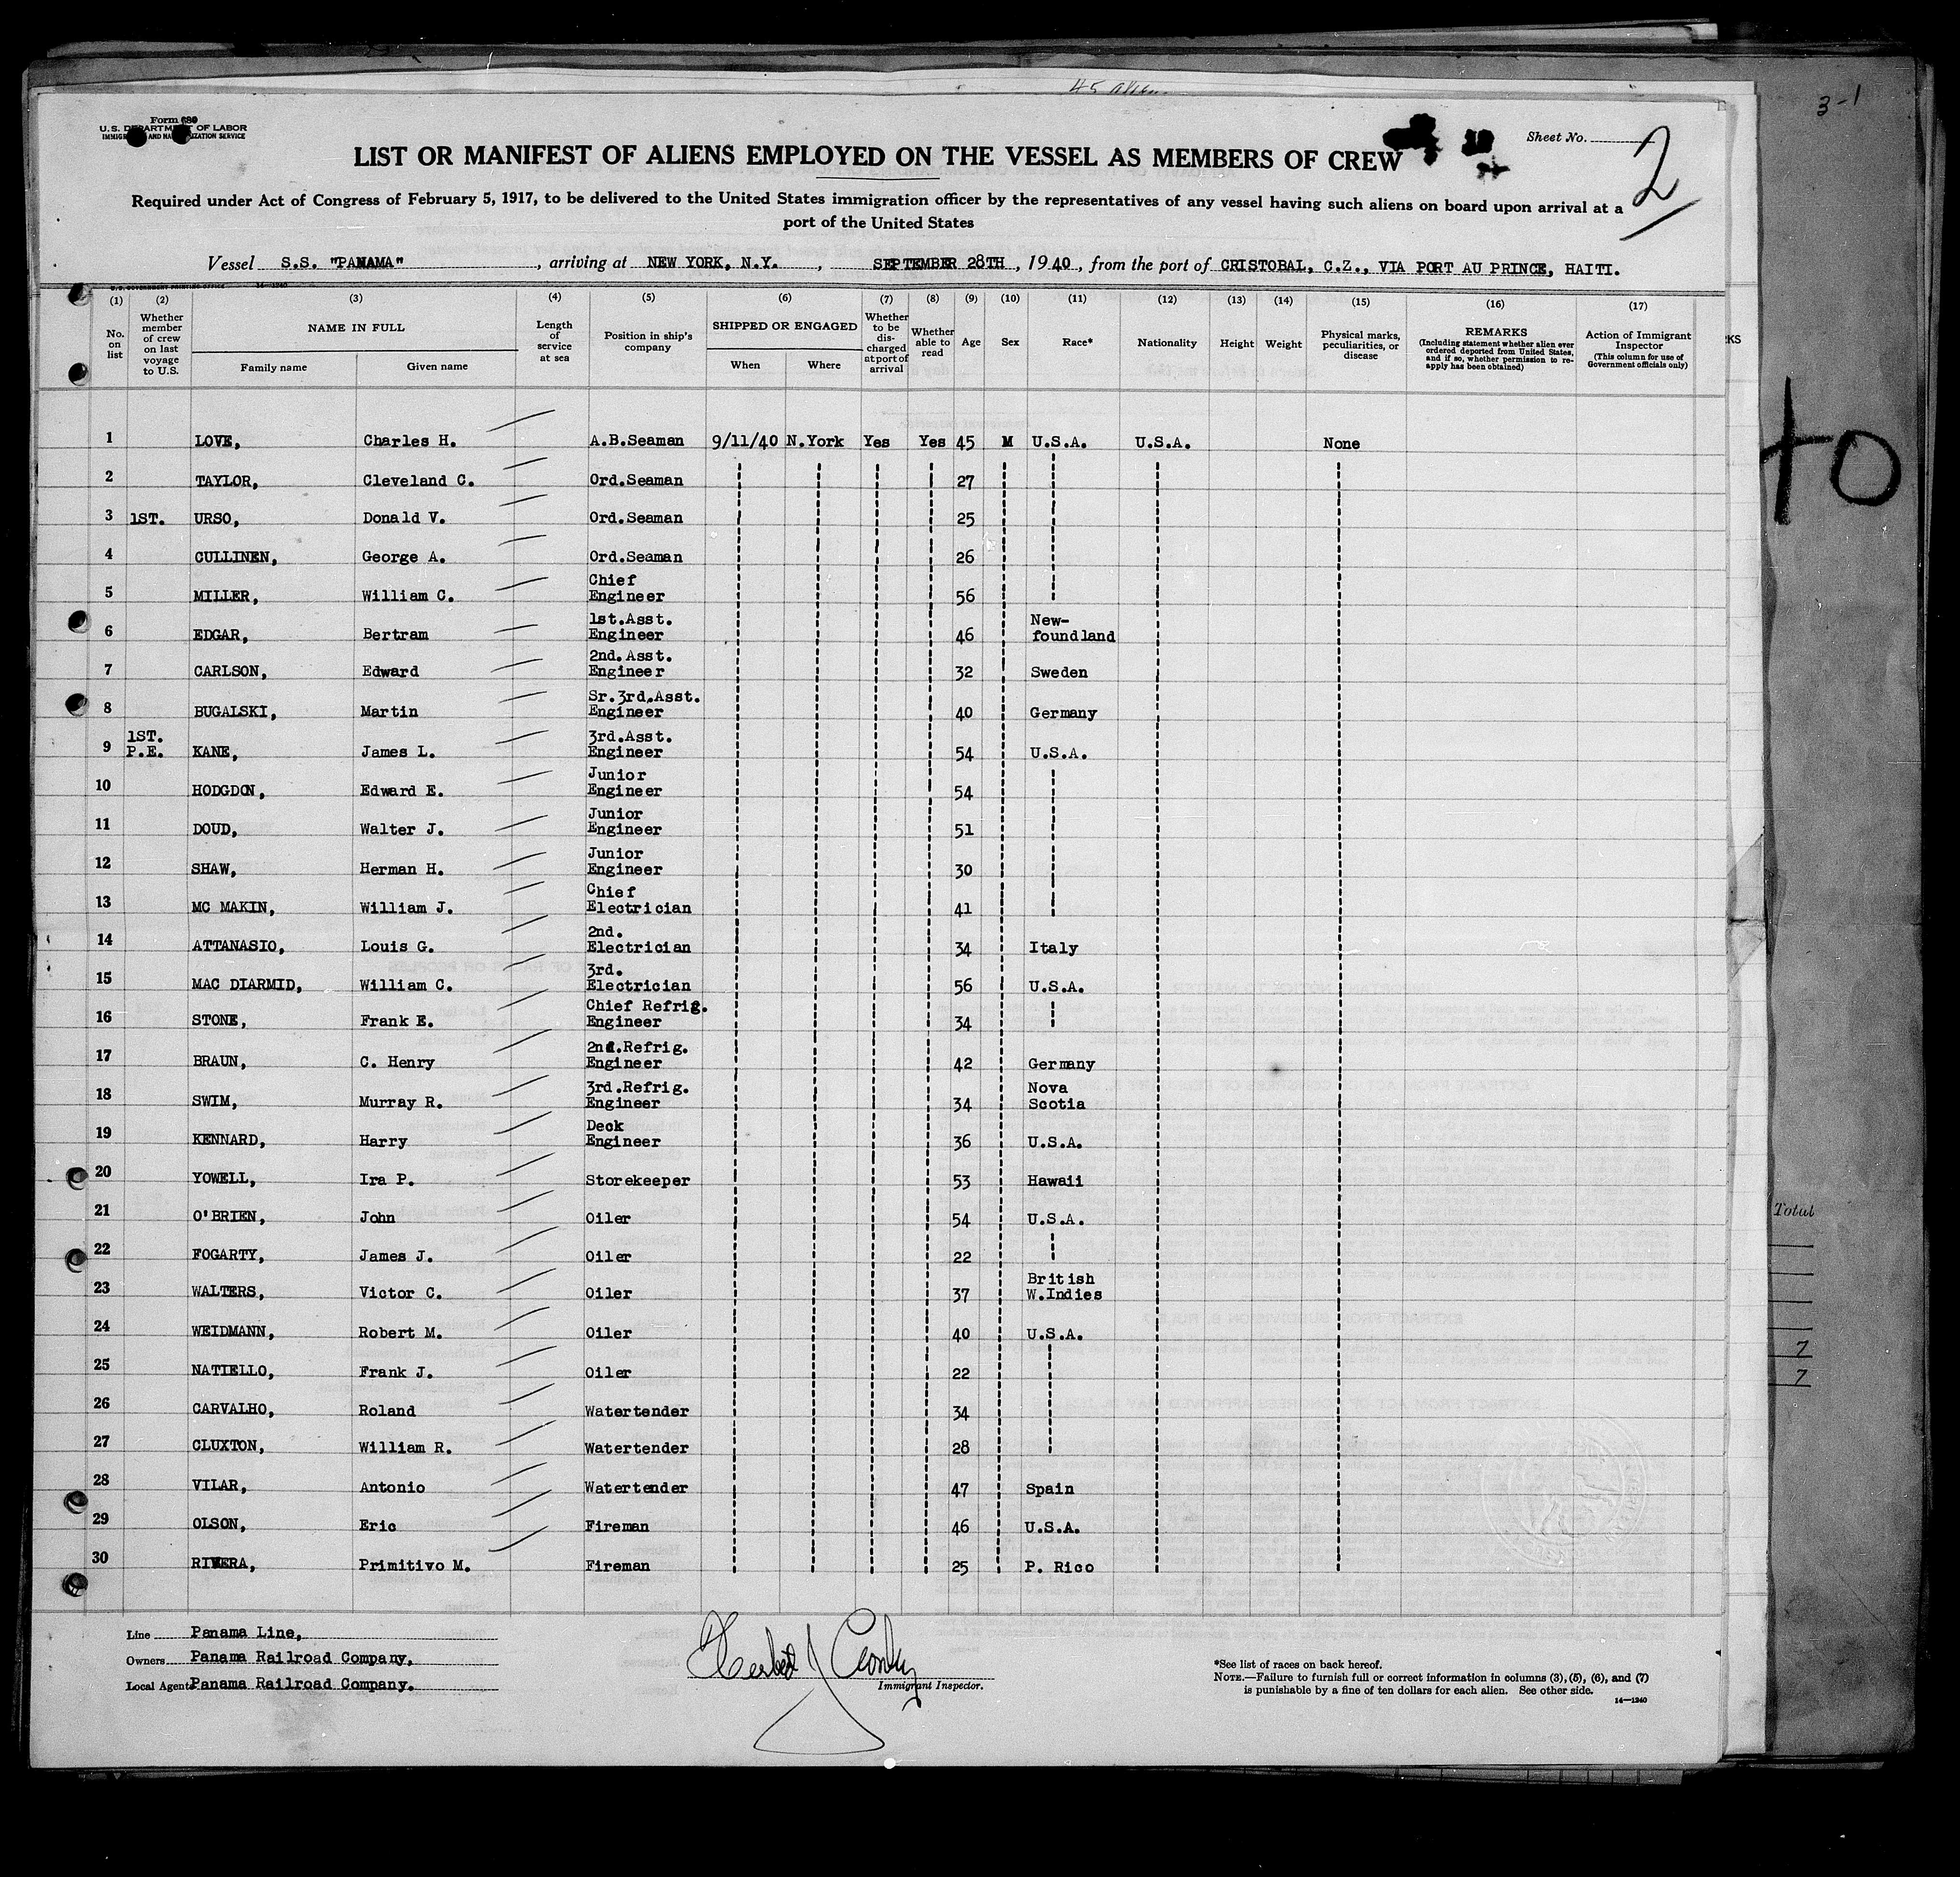 45 alien
3-1
Form 680
U.S. DEPARTMENT OF LABOR
IMMIGRATION AND NATURALIZATION SERVICE
Sheet No. 2
LIST OR MANIFEST OF ALIENS EMPLOYED ON THE VESSEL AS MEMBERS OF CREW
Required under Act of Congress of February 5, 1917, to be delivered to the United States immigration officer by the representatives of any vessel having such aliens on board upon arrival at a
port of the United States
Vessel S.S. "PANAMA", arriving at NEW YORK, N.Y., SEPTEMBER 28TH, 1940, from the port of CRISTOBAL, C.Z., VIA PORT AU PRINCE, HAITI.
U.S. GOVERNMENT PRINTING OFFICE 14-1240
(1) (2) (3) (4) (5) (6) (7) (8) (9) (10) (11) (12) (13) (14) (15) (16) (17)
No. on list
Whether member of crew on last voyage to U.S.
NAME IN FULL
Family name Given name
Length of service at sea
Position in ship's company
SHIPPED OR ENGAGED
When Where
Whether to be discharged at port of arrival
Whether able to read
Age
Sex
Race*
Nationality
Height
Weight
Physical marks, peculiarities, or disease
REMARKS
(Including statement whether alien ever ordered deported from United States, and if so, whether permission to reapply has been obtained)
Action of Immigrant Inspector
(This column for use of Government officials only)
RKS
1 LOVE, Charles H. A.B.Seaman 9/11/40 N.York Yes Yes 45 M U.S.A. U.S.A. None
2 TAYLOR, Cleveland C. Ord.Seaman 27
3 1ST. URSO, Donald V. Ord.Seaman 25
4 CULLINEN, George A. Ord.Seaman 26
5 MILLER, William C. Chief Engineer 56
6 EDGAR, Bertram 1st.Asst. Engineer 46 New-foundland
7 CARLSON, Edward 2nd.Asst. Engineer 32 Sweden
8 BUGALSKI, Martin Sr.3rd.Asst. Engineer 40 Germany
9 1ST. P.E. KANE, James L. 3rd.Asst. Engineer 54 U.S.A.
10 HODGDON, Edward E. Junior Engineer 54
11 DOUD, Walter J. Junior Engineer 51
12 SHAW, Herman H. Junior Engineer 30
13 MC MAKIN, William J. Chief Electrician 41
14 ATTANASIO, Louis G. 2nd. Electrician 34 Italy
15 MAC DIARMID, William C. 3rd. Electrician 56 U.S.A.
16 STONE, Frank E. Chief Refrig. Engineer 34
17 BRAUN, C. Henry 2nd.Refrig. Engineer 42 Germany
18 SWIM, Murray R. 3rd.Refrig. Engineer 34 Nova Scotia
19 KENNARD, Harry Deck Engineer 36 U.S.A.
20 YOWELL, Ira P. Storekeeper 53 Hawaii
21 O'BRIEN, John Oiler 54 U.S.A.
22 FOGARTY, James J. Oiler 22
23 WALTERS, Victor C. Oiler 37 British W.Indies
24 WEIDMANN, Robert M. Oiler 40 U.S.A.
25 NATIELLO, Frank J. Oiler 22
26 CARVALHO, Roland Watertender 34
27 CLUXTON, William R. Watertender 28
28 VILAR, Antonio Watertender 47 Spain
29 OLSON, Eric Fireman 46 U.S.A.
30 RIVERA, Primitivo M. Fireman 25 P. Rico
Total
7
7
Line Panama Line,
Owners Panama Railroad Company,
Local Agents Panama Railroad Company.
Immigrant Inspector.
*See list of races on back hereof.
NOTE.—Failure to furnish full or correct information in columns (3), (5), (6), and (7)
is punishable by a fine of ten dollars for each alien. See other side.
14-1240